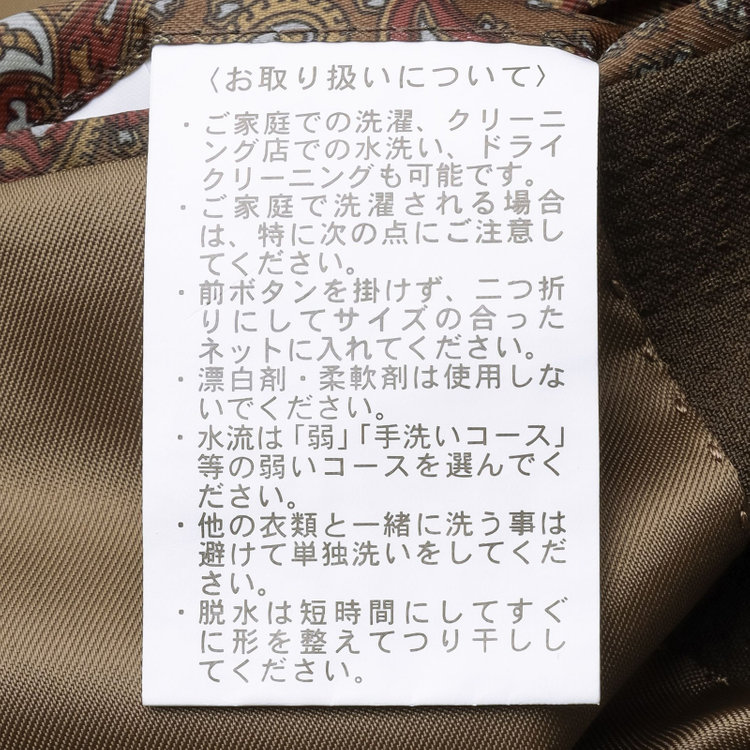 〈お取り扱いについて〉
・ご家庭での洗濯、クリーニ
ング店での水洗い、ドライ
クリーニングも可能です。
・ご家庭で洗濯される場合
は、特に次の点にご注意し
てください。
・前ボタンを掛けず、二つ折
りにしてサイズの合った
ネットに入れてください。
・漂白剤・柔軟剤は使用しな
いでください。
・水流は「弱」「手洗いコース」
等の弱いコースを選んでく
ださい。
・他の衣類と一緒に洗う事は
避けて単独洗いをしてくだ
さい。
・脱水は短時間にしてすぐ
に形を整えてつり干しし
てください。